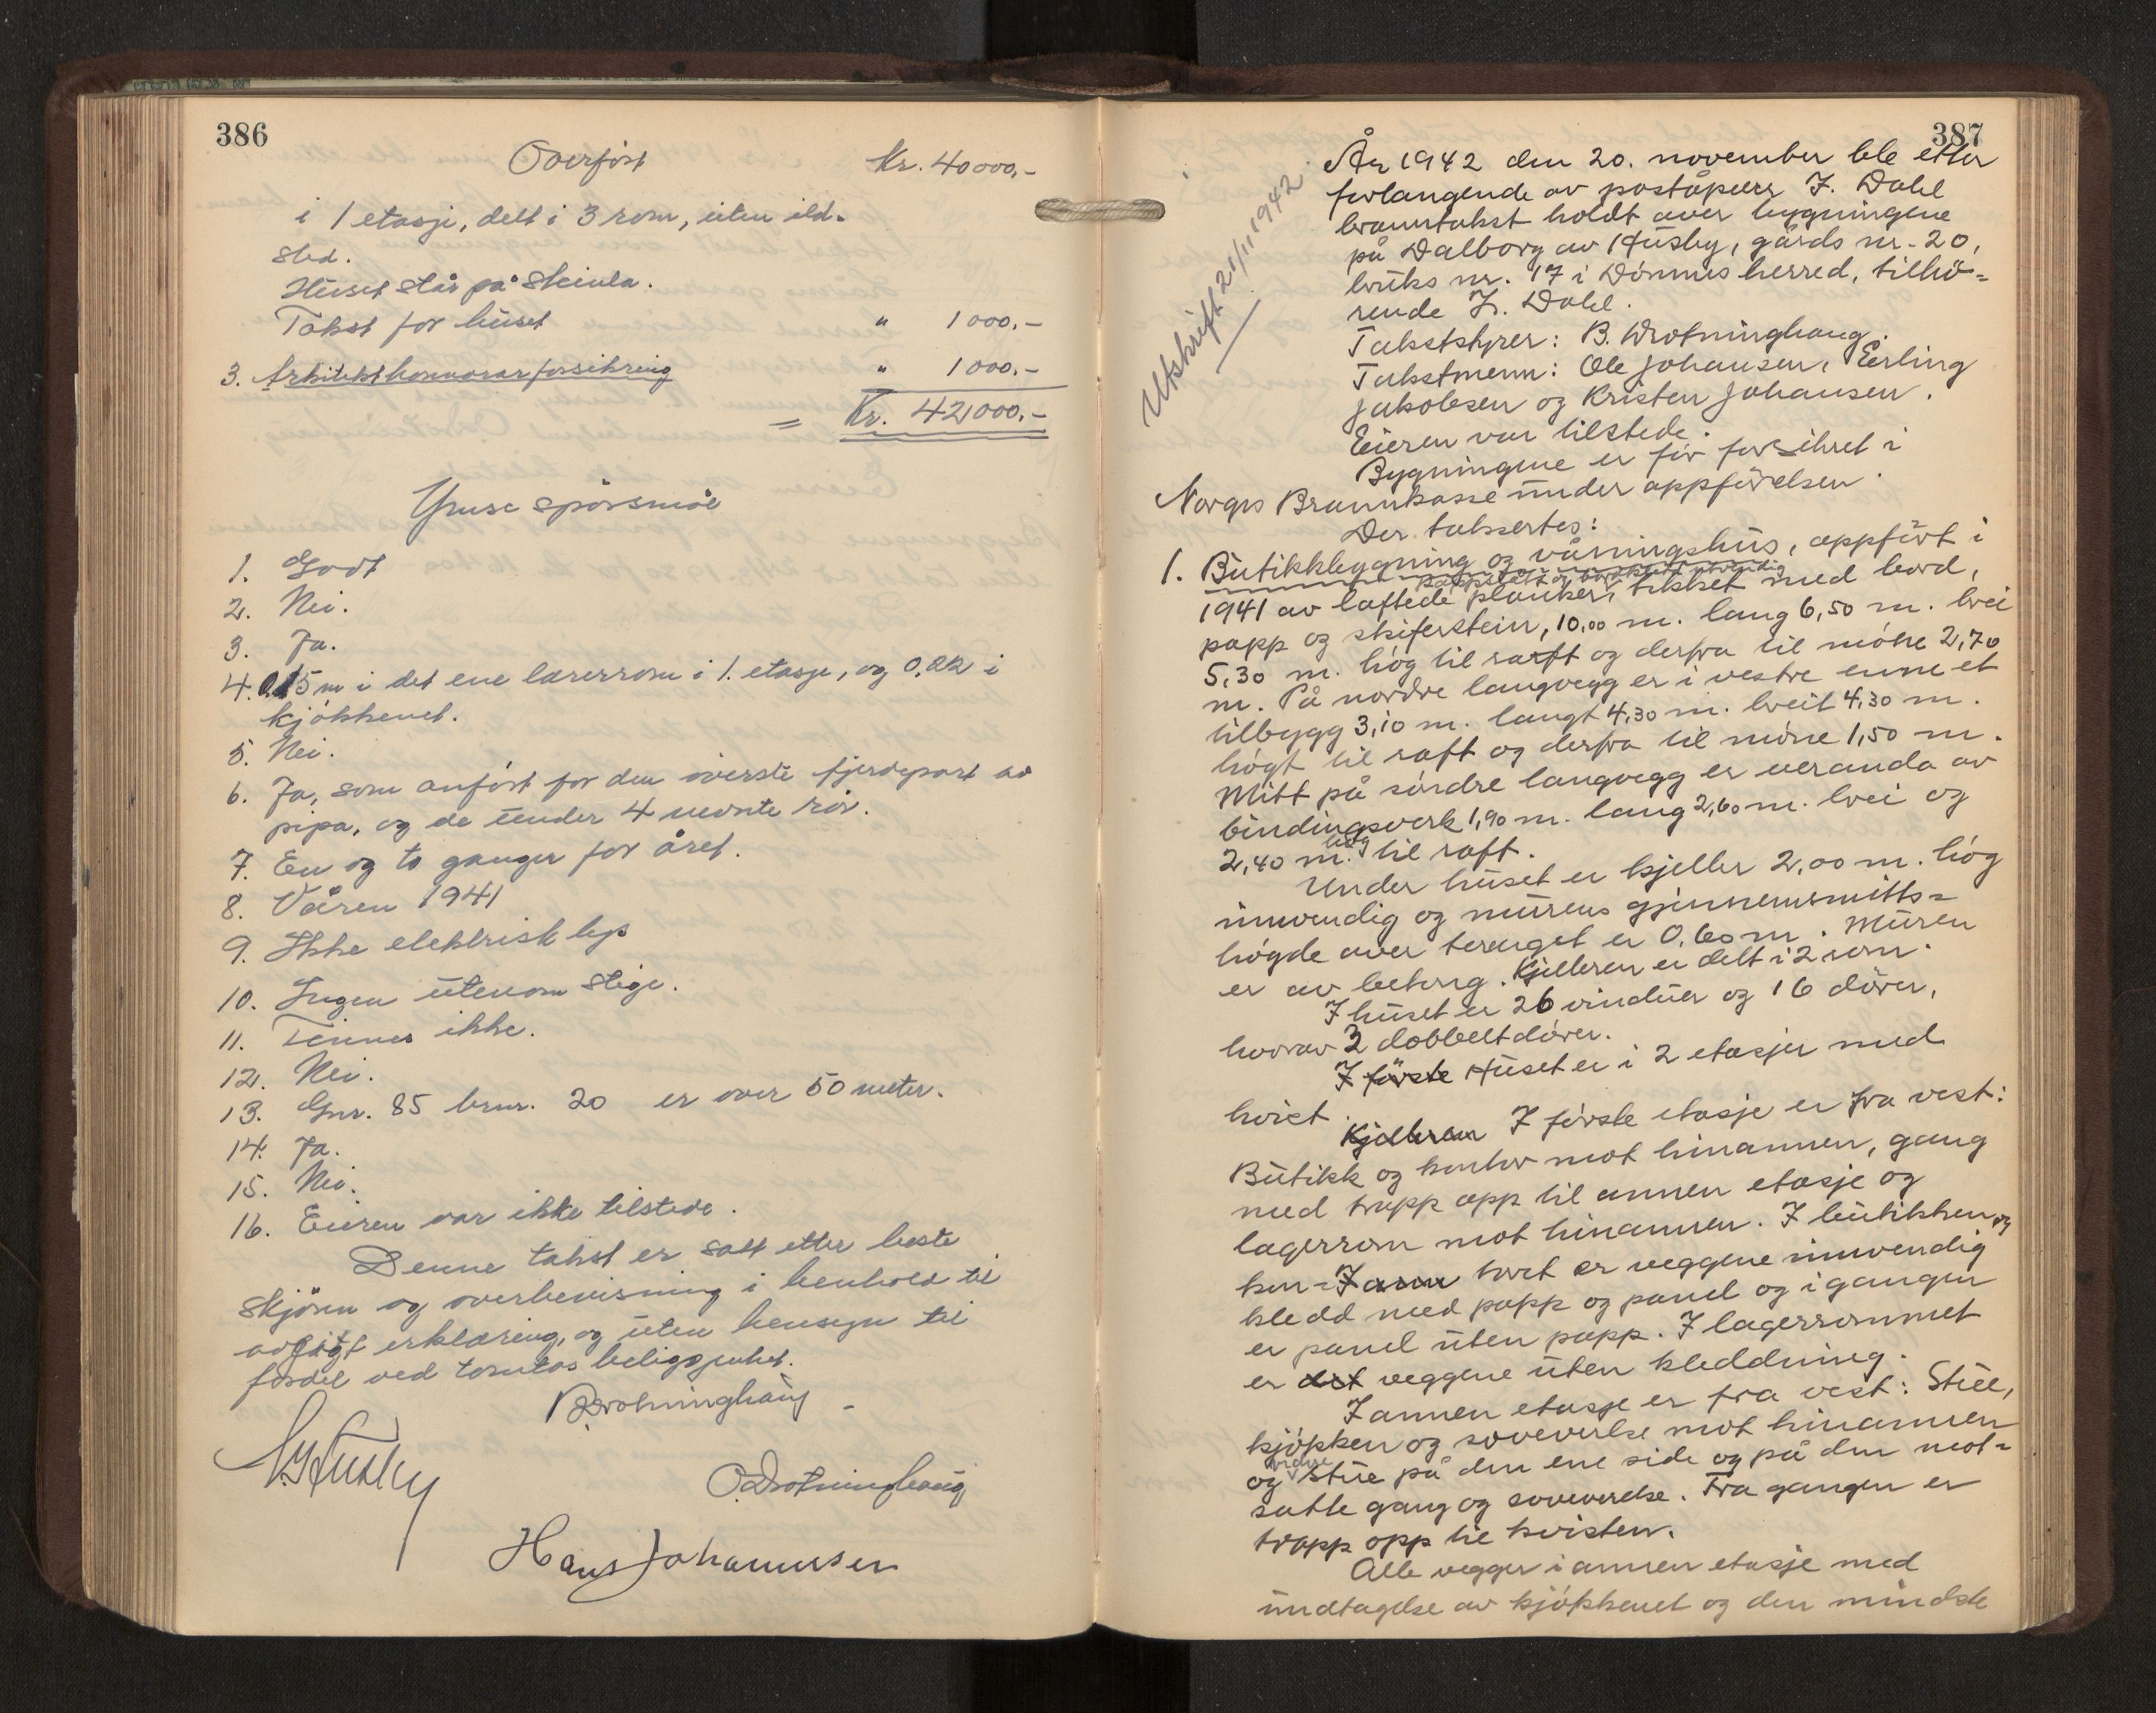 386
Overført Kr. 40000,-
i 1 etasje, delt i 3 rom, uten ild-
sted.
Huset står på steinla.
Takst for huset " 1000.-
3. Arkitekthonnorarforsikring " 1000.-
= Kr. 42000.-
Ymse spørsmål
1. Godt
2. Nei.
3. Ja.
4. 0.15 m i det ene lærerrom i 1. etasje, og 0,22 i
kjøkkenet.
5. Nei.
6. Ja, som anført for den øverste fjerdepart av
pipa, og de under 4 nevnte rør.
7. En og to ganger for året.
8. Våren 1941
9. Ikke elektrisk lys
10. Ingen utenom stige.
11. Finnes ikke.
12. Nei.
13. Gnr. 85 brnr. 20 er over 50 meter.
14. Ja.
15. Nei.
16. Eieren var ikke tilstede.
Denne takst er satt etter beste
skjønn og overbevisning i henhold til
avgitt erklæring, og uten hensyn til
fordel ved tomtas beliggenhet.
B. Drotninghaug
Husby
O. Drotninghaug
Hans Johannessen
387
Utskrift 21/11 1942
År 1942 den 20. november ble etter
forlangende av poståpner J. Dahl
branntakst holdt over bygningene
på Dalborg av Husby, gårds nr. 20,
bruks nr. 17 i Dønnes herred, tilhø-
rende J. Dahl.
Takststyrer: B. Drotninghaug.
Takstmenn: Ole Johansen, Erling
Jakobsen og Kristen Johansen.
Eieren var tilstede.
Bygningene er før forsikret i
Norges Brannkasse under oppførelsen.
Der takstertes:
1. Butikkbygning og våningshus, oppført i
1941 av laftede planker, tekket med bord,
papp og skiferstein, 10,00 m. lang 6,50 m. brei
5,30 m. høg til raft og derfra til møne 2,70
m. På nordre langvegg er i vestre enne et
tilbygg 3,10 m. langt 4,30 m. breit 4,30 m.
høgt til raft og derfra til møne 1,50 m.
Mitt på søndre langvegg er veranda av
bindingsverk 1,90 m. lang 2,60 m. brei og
2,40 m. høg til raft.
Under huset er kjeller 2,00 m. høg
innvendig og murens gjennemsnitts-
høgde over terænget er 0,60 m. Muren
er av betong. Kjelleren er delt i 2 rom.
I huset er 26 vinduer og 16 dører,
hvorav 3 dobbeltdører.
I første Huset er i 2 etasjer med
kvist.
Kjelleren I første etasje er fra vest:
Butikk og kontor mot hinannen, gang
med trapp opp til annen etasje og
lagerrom mot hinannen. I butikken og
kon- I ann toret er veggene innvendig
kledd med papp og panel og i gangen
er panel uten papp. I lagerrommet
er det veggene uten kleddning.
I annen etasje er fra vest: Stue,
kjøkken og soveverelse mot hinannen
og videre stue på den ene side og på den mot-
satte gang og soveverelse. Fra gangen er
trapp opp til kvisten.
Alle vegger i annen etasje med
undtagelse av kjøkkenet og den mindste